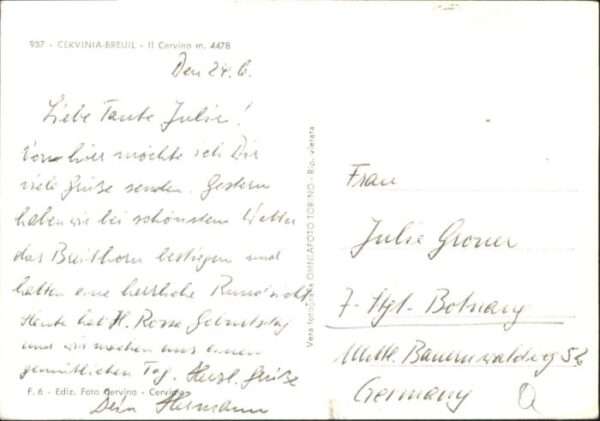 937 - CERVINIA-BREUIL - Il Cervino m. 4478
Den 24.6.
Liebe Tante Julie!
Von hier möchte ich Dir
viele Grüße senden. Gestern
haben wir bei schönstem Wetter
das Breithorn bestiegen und
hatten eine herrliche Rundsicht
Heute hat H. Rosse Geburtstag
und wir machen uns einen
gemütlichen Tag. Herzl. Grüße
Dein Hermann
F. 6 - Ediz. Foto Cervino - Cervinia
Vera fotografia OMNIAFOTO TORINO - Rip. vietata
Frau
Julie Groner
7. Stgt. Botnang
Mittl. Bauernwaldweg 56
Germany